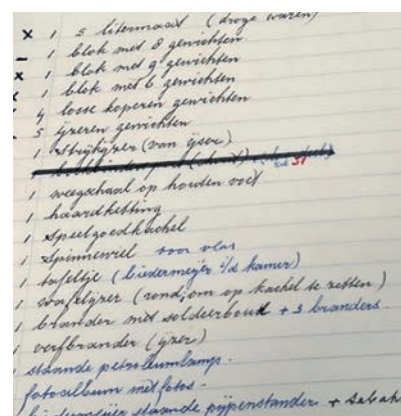 x 1 5 litermaat (droge waren)
- 1 blok met 8 gewichten
x 1 blok met 9 gewichten
x 1 blok met 6 gewichten
4 losse koperen gewichten
5 ijzeren gewichten
1 strijkijzer (van ijzer)
51
1 weegschaal op houten voet
1 haardketting
1 speelgoedkachel
1 spinnewiel voor vlas
1 tafeltje (biedermeijer i/d kamer)
1 wafelijzer (rond, om op kachel te zetten)
1 brander met soldeerbout + 3 branders
1 verfbrander (ijzer)
1 staande petroleumlamp.
1 fotoalbum met fotos -
staande pijpenstander +